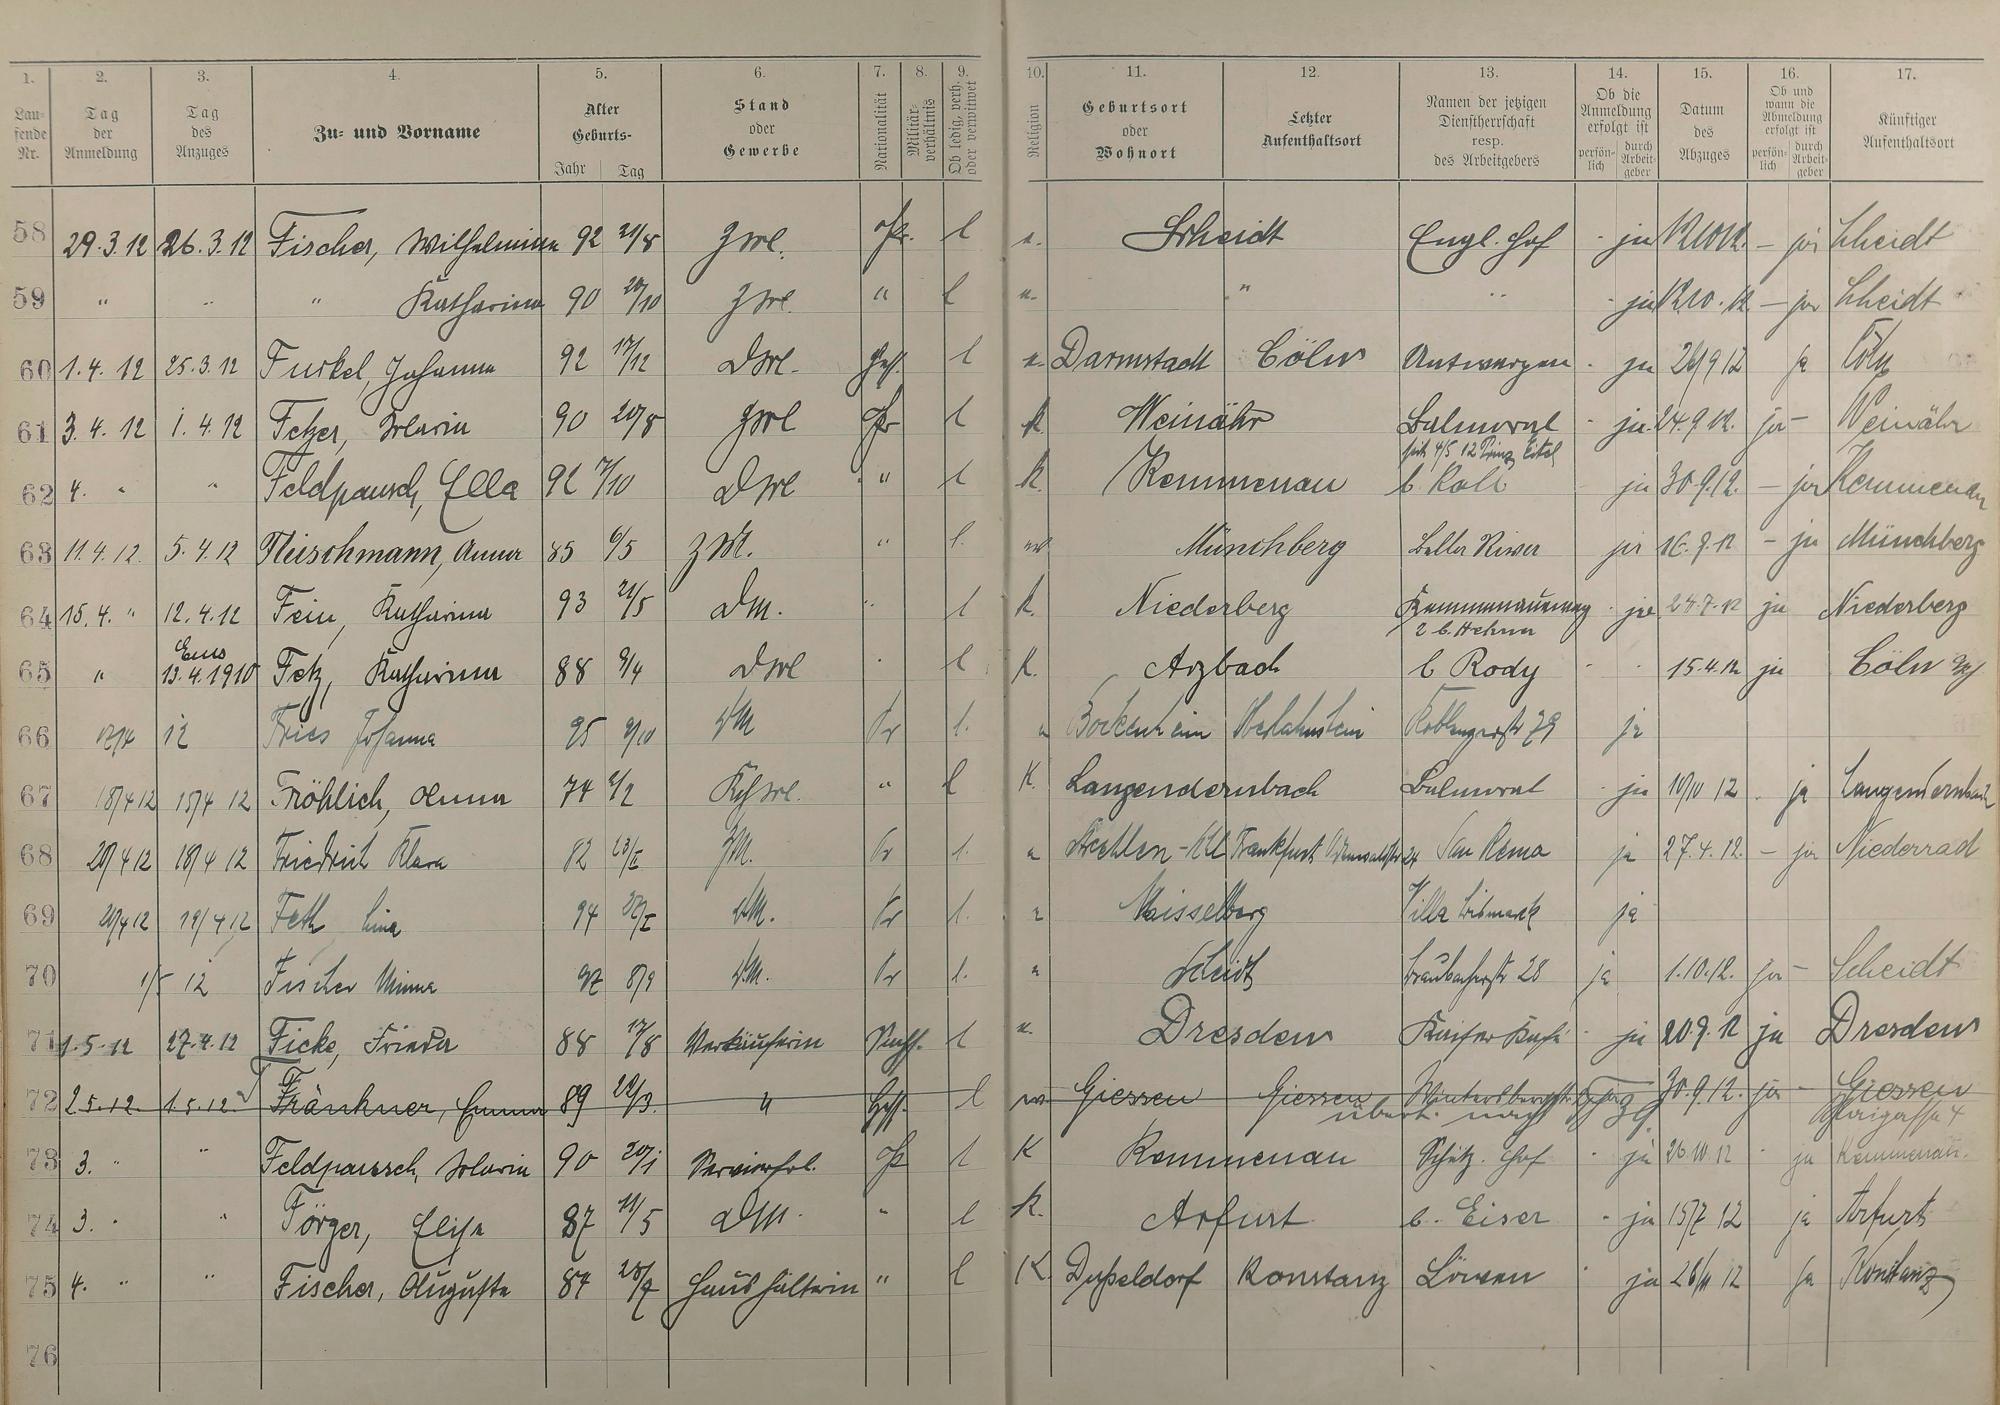 1. 2. 3. 4. 5. 6. 7. 8. 9. 10. 11. 12. 13. 14. 15. 16. 17.
Laufende Nr. Tag der Anmeldung Tag des Anzuges Zu- und Vorname Alter Geburts- Jahr Tag Stand oder Gewerbe Nationalität Militärverhältnis Ob ledig, verh. oder verwitwet Religion Geburtsort oder Wohnort Letzter Aufenthaltsort Namen der jetzigen Dienstherrschaft resp. des Arbeitgebers Ob die Anmeldung erfolgt ist persönlich durch Arbeitgeber Datum des Abzuges Ob und wann die Abmeldung erfolgt ist persönlich durch Arbeitgeber Künftiger Aufenthaltsort
58 29.3.12 26.3.12 Fischer, Wilhelmine 92 21/8 l Scheidt Engl. Hof - ja - ja Scheidt
59 " " " Katharina 90 20/10 " l " " - ja - ja Scheidt
60 1.4.12 25.3.12 Furkel, Johanna 92 17/12 Hess. l Darmstadt Cöln - ja 26/9 12 ja Cöln
61 3.4.12 1.4.12 Fetzer, Maria 90 20/8 Pr l K. Weinähr Balmoral - ja 24.9.12. ja - Weinähr
seit 4/5 12 Prinz Eitel
62 4. " " Feldpausch, Ella 92 7/10 " l K. Kemmenau b. Roll ja 30.9.12. - ja Kemmenau
63 11.4.12. 5.4.12 Fleischmann, Anna 85 6/5 " l. Münchberg Bella Riva ja 16.9.12 - ja Münchberg
64 15.4. " 12.4.12 Fein, Katharina 93 21/5 DM. " l K. Niederberg Kemmenauerweg - ja 24.7.12 ja Niederberg
2 b. Hehner
Ems
65 " 13.4.1910 Fetz, Katharina 88 9/4 l K. Arzbach b Rody - - 15.4.12 ja Cöln
66 12 Fries Johanna 95 9/10 Pr l. Bockenheim Oberlahnstein 79 ja
67 18/4 12 15/4 12 Fröhlich, Anna 74 2/2 " l K Langendernbach Balmoral - ja 10/10 12 - ja Langendernbach
68 20/4 12 18/4 12 Friedrich Klara 82 Pr l. Frankfurt 24 San Remo ja 27.4.12. - ja Niederrad
69 20/4 12 19/4 12 Feth Lina 94 Pr l. Maisselberg Villa Bismarck ja
70 1/5 12 Fischer Minna 92 8/9 Pr l. Scheidt Braubacherstr 28 ja 1.10.12. ja - Scheidt
71 1.5.12 27.4.12 Ficke, Frieda 88 17/8 Verkäuferin l Dresden Kaiser Kafé - ja 20.9.12 ja Dresden
72 2.5.12. 1.5.12. Fränkner, Emma 89 20/3. " Hess. l Giessen Giessen 30.9.12. ja - Giessen
übertr. nach
73 3. " " Feldpausch, Maria 90 20/1 Servierfrl. Pr l K Kemmenau Schütz. Hof - ja 26.10.12 - ja Kemmenau.
74 3. " " Förger, Elise 87 11/5 DM. " l K. Arfurt b. Eiser - ja 15/7 12 ja Arfurt
75 4. " " Fischer, Auguste 87 28/7 Haushälterin " l K. Dußeldorf Konstanz Löwen - ja 26/11 12 ja Konstanz
76